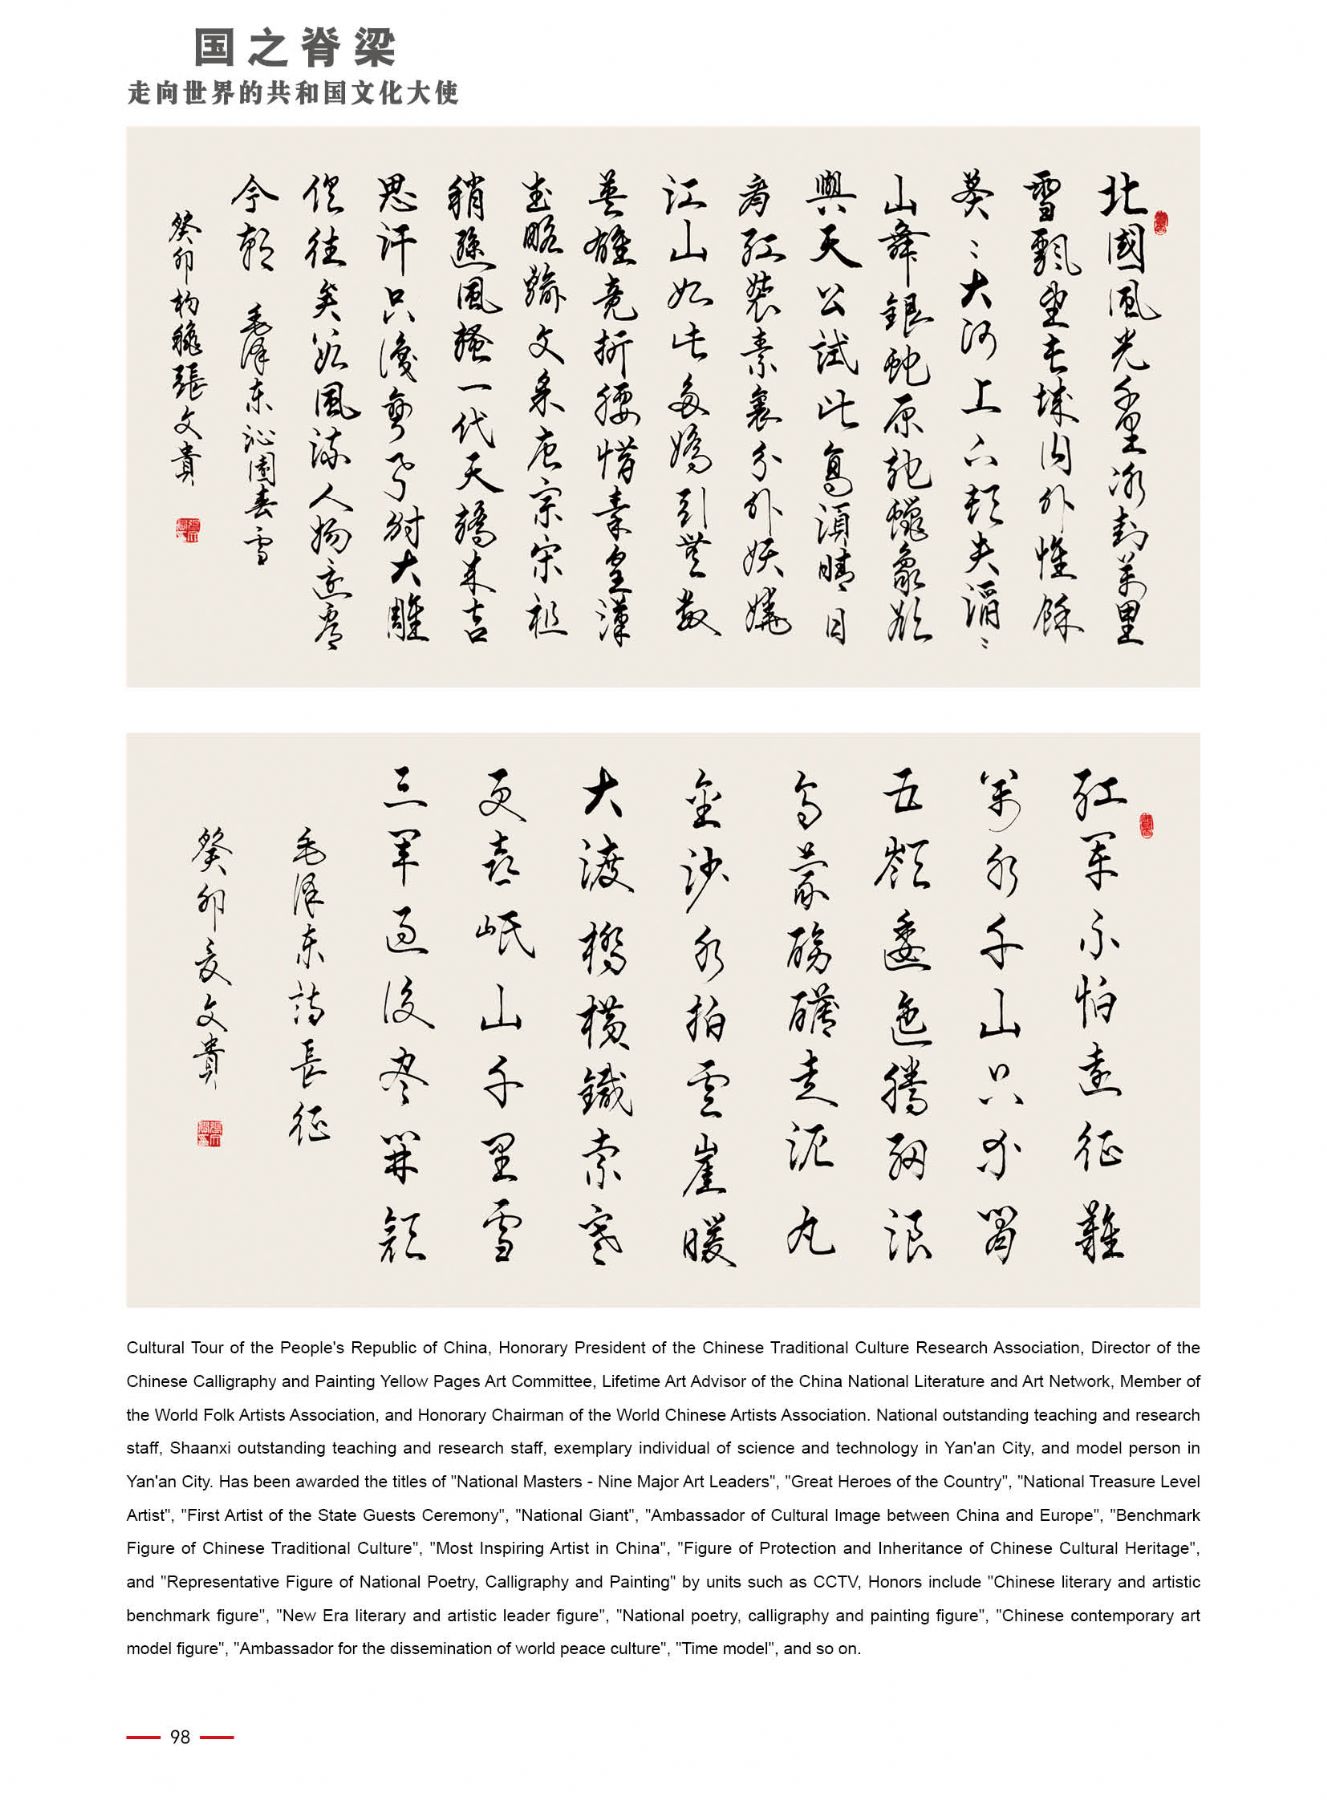 国之脊梁
走向世界的共和国文化大使
北國風光千里冰封萬里
雪飄望長城內外惟餘
莽〻大河上下頓失滔〻
山舞銀蛇原馳蠟象欲
與天公試比高須晴日
看紅裝素裹分外妖嬈
江山如此多嬌引無數
英雄竟折腰惜秦皇漢
武略輸文采唐宗宋祖
稍遜風騷一代天驕成吉
思汗只識彎弓射大雕
俱往矣數風流人物還看
今朝 毛澤东沁園春雪
癸卯 張文貴
紅軍不怕遠征難
萬水千山只等閑
五嶺逶迤騰細浪
烏蒙磅礴走泥丸
金沙水拍雲崖暖
大渡橋橫鐵索寒
更喜岷山千里雪
三軍過後盡開顏
毛澤东詩長征
癸卯 文貴
Cultural Tour of the People's Republic of China, Honorary President of the Chinese Traditional Culture Research Association, Director of the
Chinese Calligraphy and Painting Yellow Pages Art Committee, Lifetime Art Advisor of the China National Literature and Art Network, Member of
the World Folk Artists Association, and Honorary Chairman of the World Chinese Artists Association. National outstanding teaching and research
staff, Shaanxi outstanding teaching and research staff, exemplary individual of science and technology in Yan'an City, and model person in
Yan'an City. Has been awarded the titles of "National Masters - Nine Major Art Leaders", "Great Heroes of the Country", "National Treasure Level
Artist", "First Artist of the State Guests Ceremony", "National Giant", "Ambassador of Cultural Image between China and Europe", "Benchmark
Figure of Chinese Traditional Culture", "Most Inspiring Artist in China", "Figure of Protection and Inheritance of Chinese Cultural Heritage",
and "Representative Figure of National Poetry, Calligraphy and Painting" by units such as CCTV, Honors include "Chinese literary and artistic
benchmark figure", "New Era literary and artistic leader figure", "National poetry, calligraphy and painting figure", "Chinese contemporary art
model figure", "Ambassador for the dissemination of world peace culture", "Time model", and so on.
98